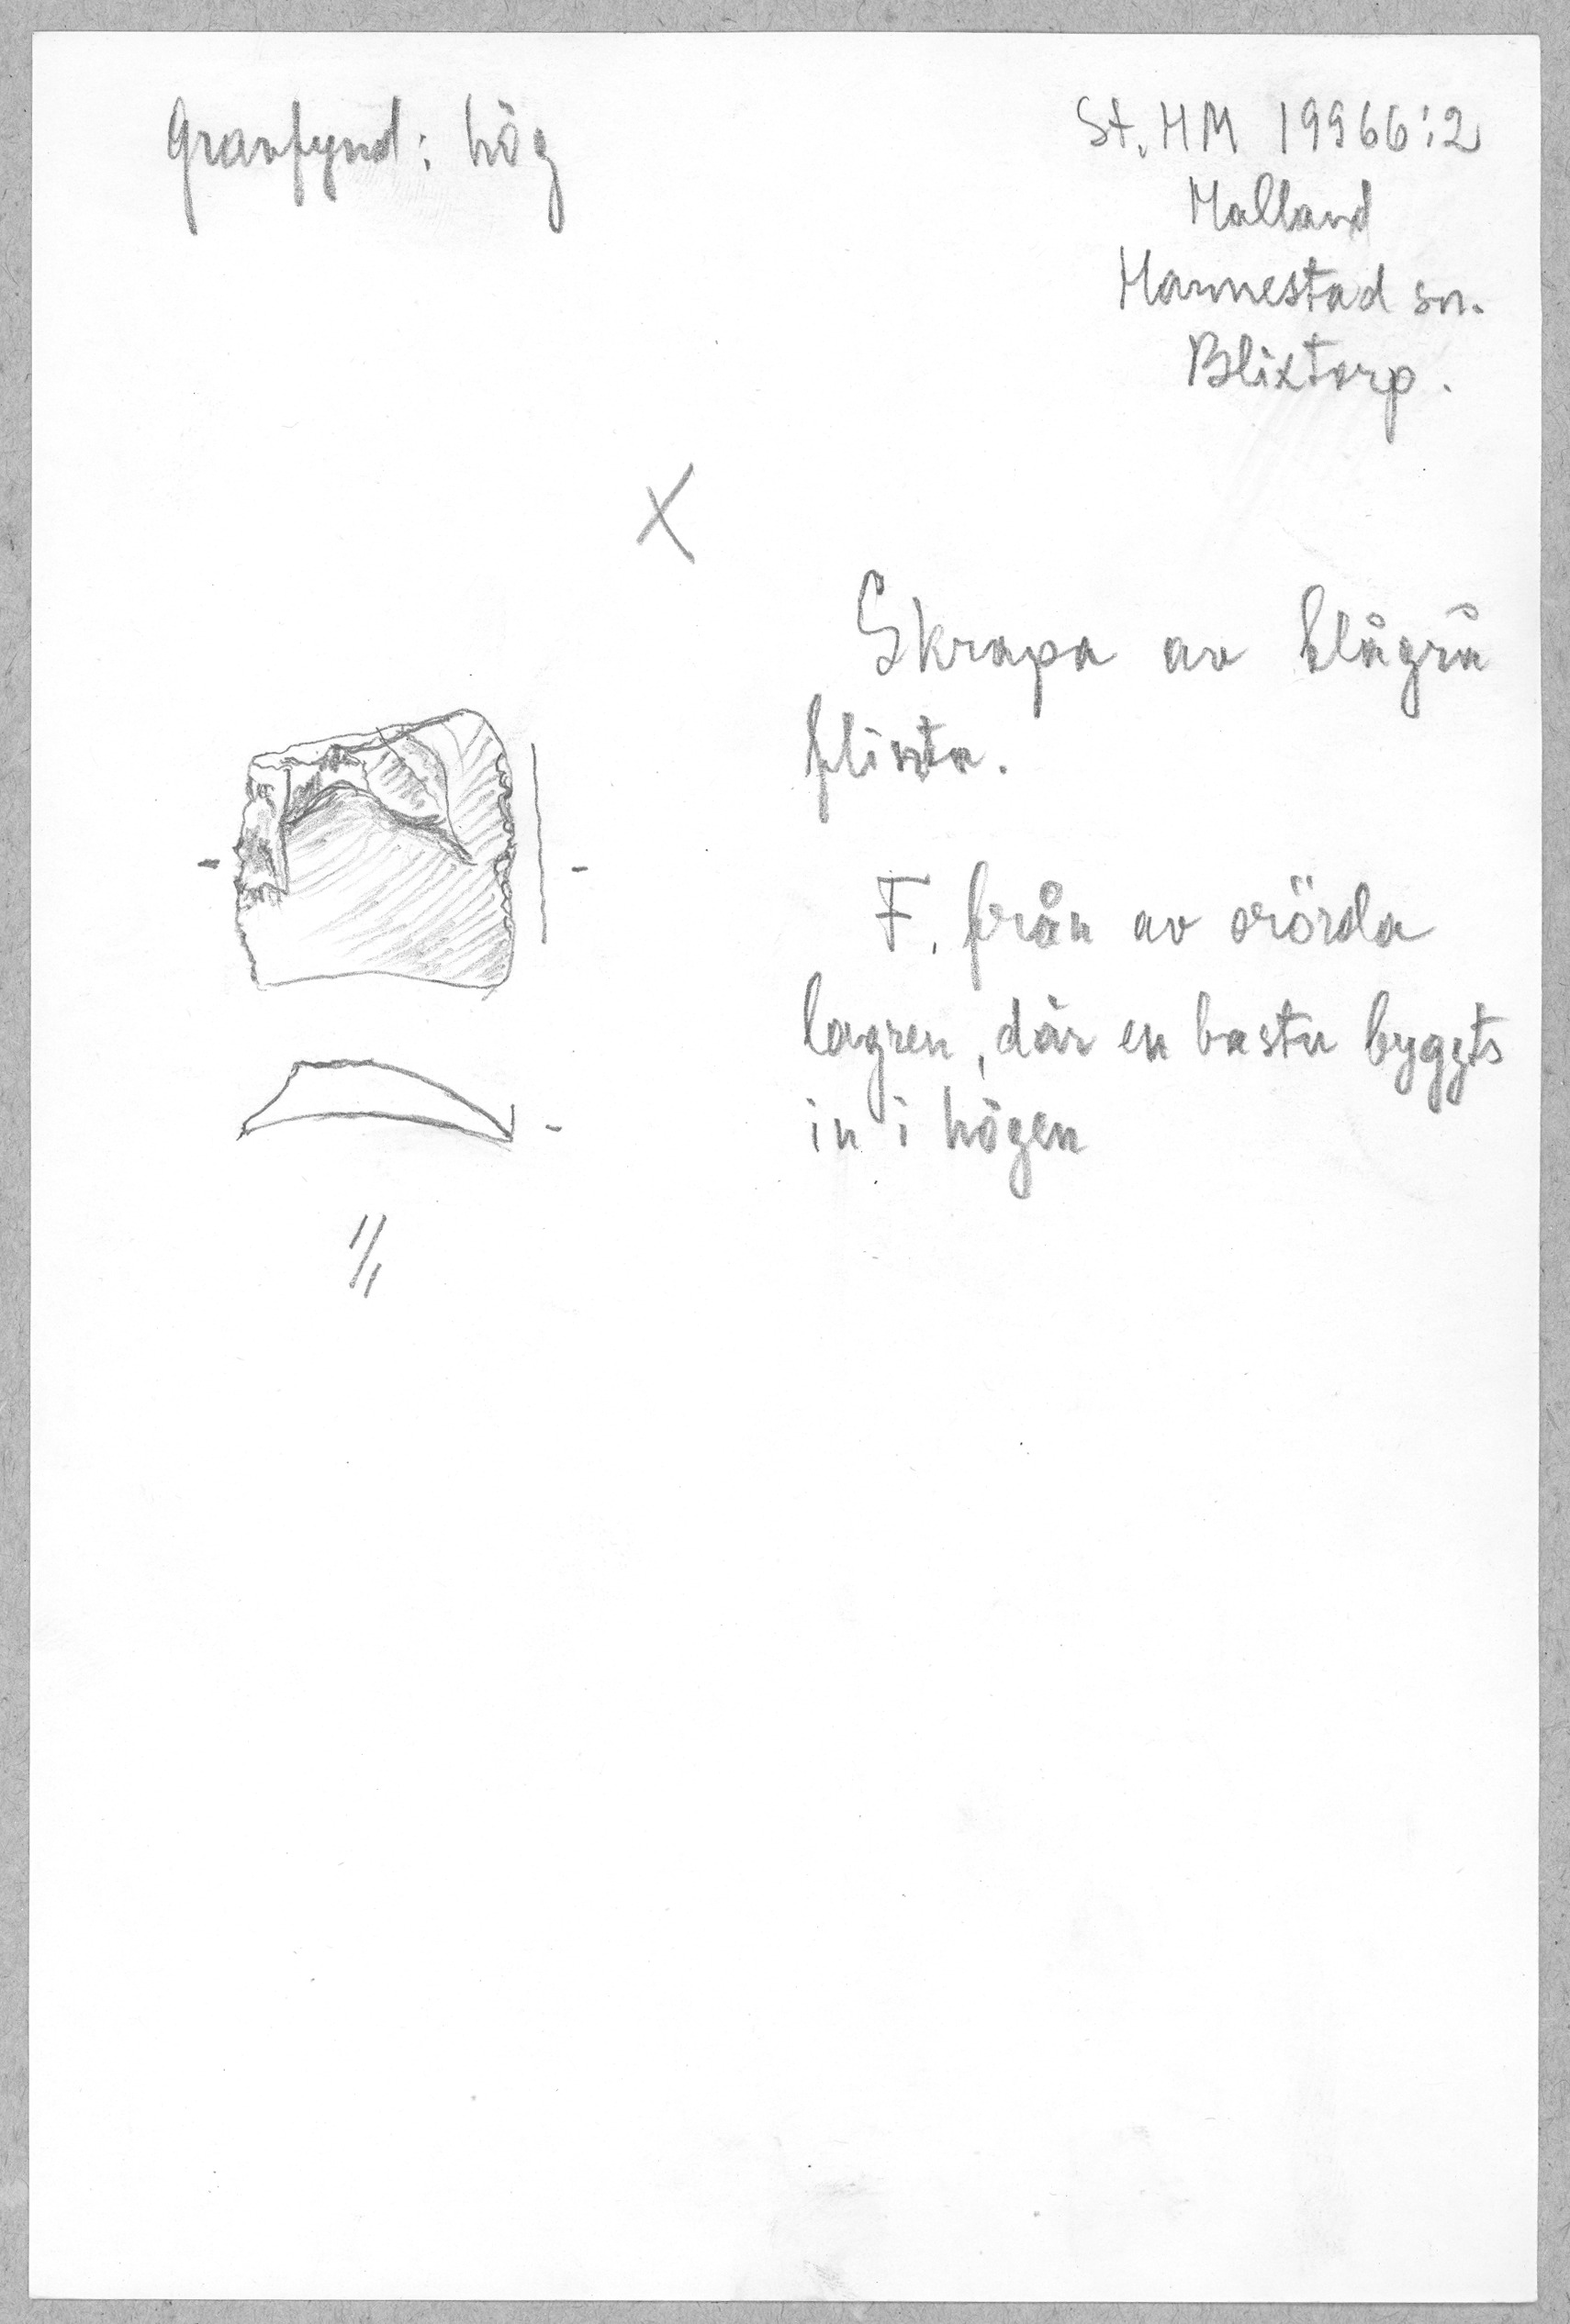 Gravfynd: hög
St. HM 19966:2
Halland
Harnestad sn.
Blixtorp.
X
Skrapa av blågrå
flinta.
F. från av orörda
lagren, där en bastu byggts
in i högen
1/1